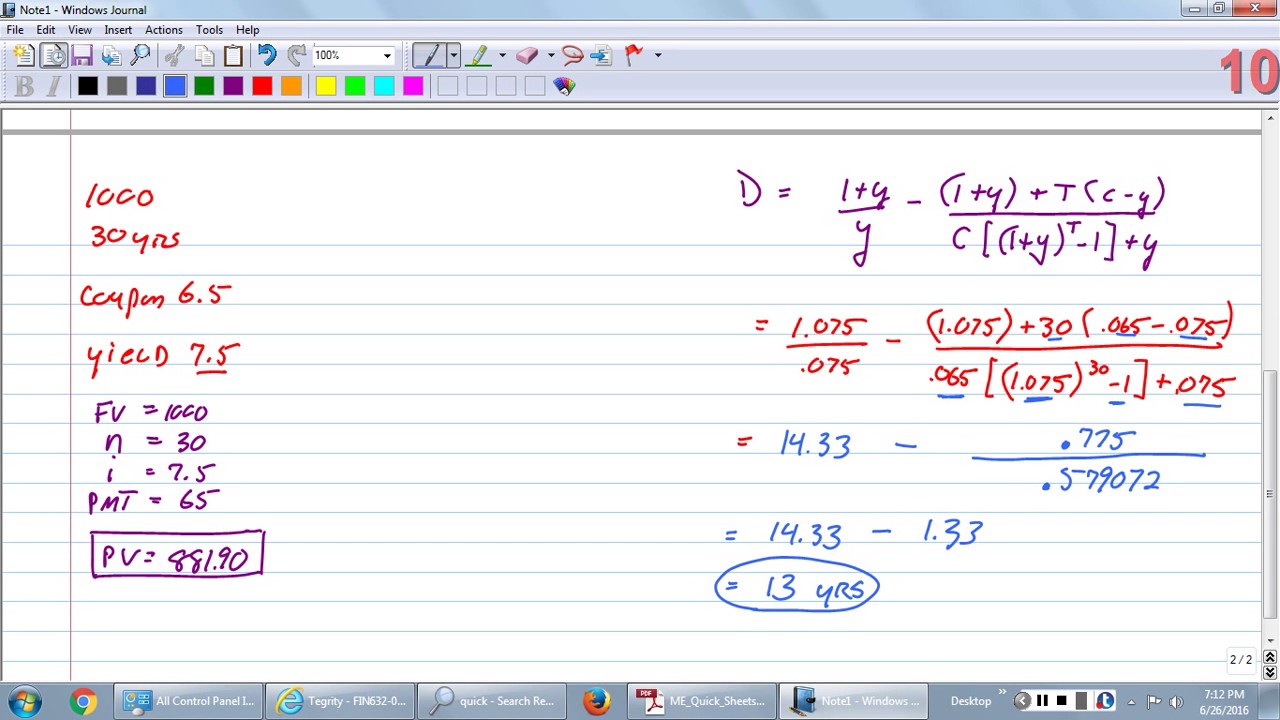 Note1 - Windows Journal
File Edit View Insert Actions Tools Help
100%
B I
10
1000
30 yrs
Coupon 6.5
yielD 7.5
FV = 1000
n = 30
i = 7.5
PMT = 65
PV = 881.90
D = (1+y)/y - ((1+y) + T(c-y))/(C[(1+y)^T -1] + y)
= 1.075/.075 - ((1.075) + 30(.065 - .075))/(.065[(1.075)^30 -1] + .075)
= 14.33 - .775/.579072
= 14.33 - 1.33
= 13 YRS
2 / 2
All Control Panel I...
Tegrity - FIN632-0...
quick - Search Re...
ME_Quick_Sheets...
Note1 - Windows ...
Desktop
7:12 PM
6/26/2016